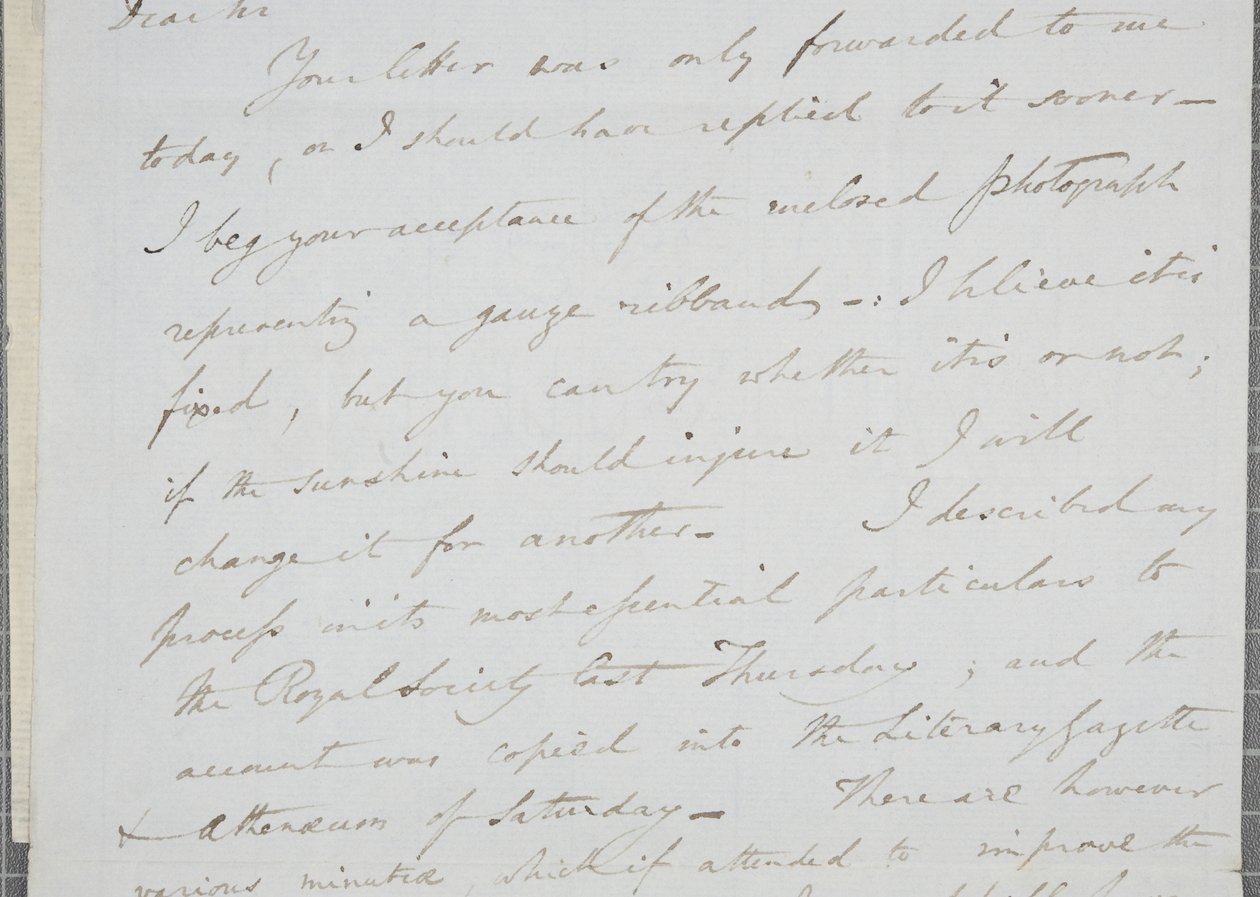 Dear Sir
Your letter was only forwarded to me
today, or I should have replied to it sooner—
I beg your acceptance of the inclosed photograph
representing a gauze ribband —: I believe it is
fixed, but you can try whether it is or not;
if the sunshine should injure it I will
change it for another— I described my
process in its most essential particulars to
the Royal Society last Thursday; and the
account was copied into the Literary Gazette
& Athenæum of Saturday— There are however
various minutiæ, which if attended to improve the